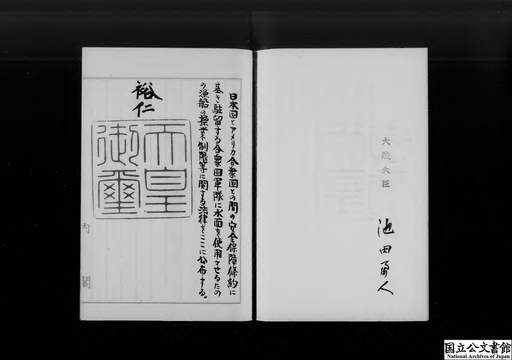 日本国とアメリカ合衆国との間の安全保障條約に
基き駐留する合衆国軍隊に水面を使用させるため
の漁船の操業制限等に関する法律をここに公布する。
裕仁
天皇
御璽
内閣
大蔵大臣
池田勇人
国立公文書館
National Archives of Japan